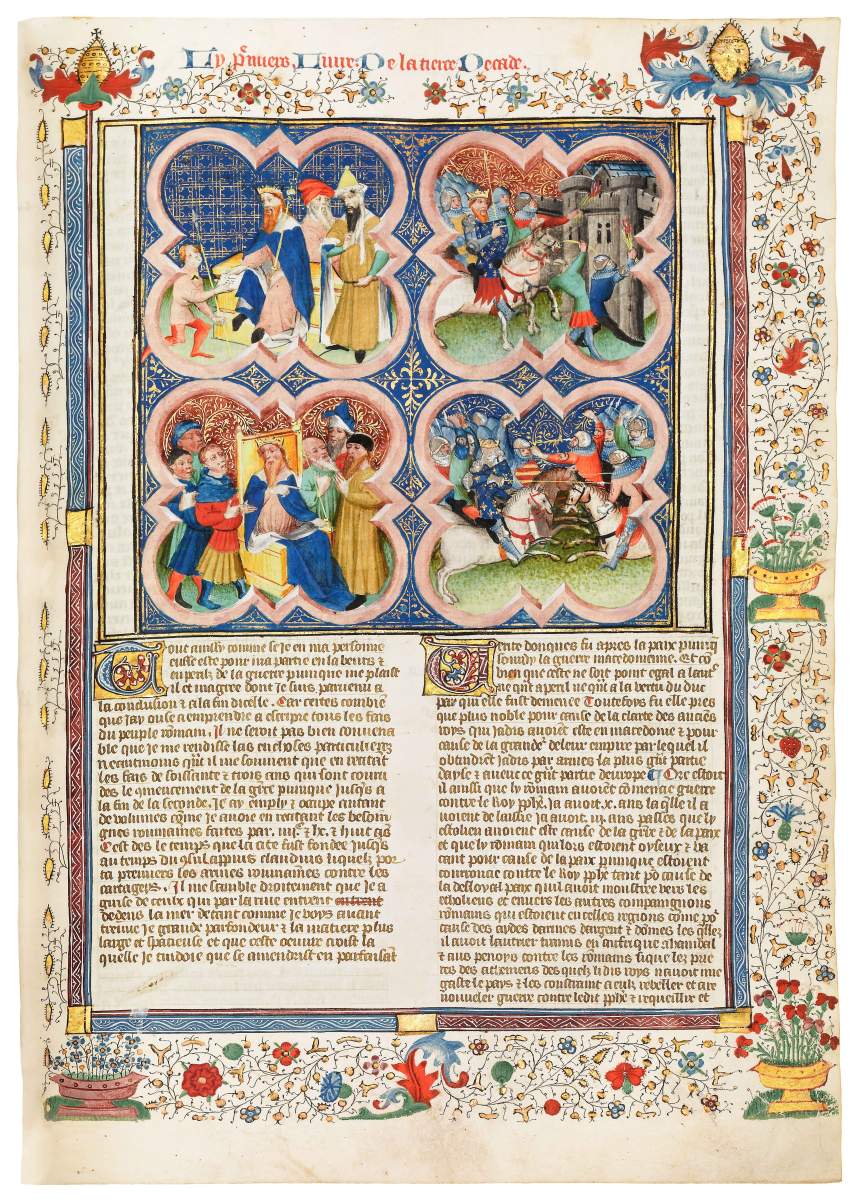 Ly p̄miers Livre: De la tierce Decade.
Tout ainsy comme se Je en ma personne
eusse este pour ma partie en la beurs ⁊
en perilz de la guerre punique me plaist
il et magree dont Je suis parvenu a
la conclusion ⁊ a la fin dicelle. Car certes combiē
que Jay ouse emprendre a escripre tous les fais
du peuple romain. Il ne seroit pas bien convena
ble que Je me rendisse las en choses particulieres
neantmoins quāt il me souvient que en recitāt
les fais de soissante ⁊ trois ans qui sont couru
des le cōmencement de la gr̄re punique Jusq̄s a
la fin de la seconde. Je ay emply ⁊ ocupe autant
de volumes cōme Je avoie en recitant les besoin
gnes rommaines faites par. iiijᶜ ⁊ lx. ⁊ huit ās
Cest des le temps que la cite fust fondee Jusq̄s
au temps du ꝯsul appius claudius liquelz por
ta premiers les armes rommaines contre les
cartageys. Il me samble droitement que Je a
guise de ceulx qui par la rive entrent
dedens la mer detant comme Je voys avant
treuve Je grande parfondeur ⁊ la matiere plus
large et spacieuse et que ceste oeuvre croist la
quelle Je cuidoie que se amendrist en parfaisāt
donques fu apres la paix puniq̄
la guerre macedonienne. Et cō
bien que ceste ne soit point egal a lautˢ
ne quāt a peril ne quāt a la vertu du duc
par qui elle fust demenee Toutefoys fu elle p̄s
que plus noble pour cause de la clarte des anciēs
roys qui Jadis avoiēt este en macedone ⁊ pour
cause de la grandeˢ de leur empire par lequel il
obtindrēt Jadis par armes la plus grāt partie
dayse ⁊ avecce grāt partie deurope ¶ Ore estoit
il ainsi que ly rōmain avoiēt cōmencie guerre
contre le Roy pħe Ja avoit .x. ans la q̄lle il a
voient de laissie Ja avoit .iij. ans passes que ly
etholien avoient este cause de la gr̄re ⁊ de la paix
et que ly rōmain qui lors estoient oyseux ⁊ va
cant pour cause de la paix punique estoient
contre le Roy pħe tant pō cause de
la desloyal paix quil avoit moustree vers les
etholiens et envers les autres compaignons
rōmains qui estoient en celles regions cōme poˢ
cause des aydes darmes dargent ⁊ dōmes les q̄llez
il avoit lautrier tramis en aufrique a hanibal
⁊ aus penoys contre les rōmains si que les prie
res des atheniens des quelz li dis roys navoit me
gaste le pays ⁊ les constraint a eulx rebeller et a re
nouveler guerre contre ledit pħe ⁊ requeillir et